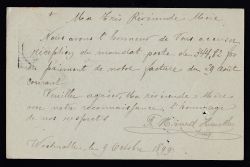 Ma Très Révérende Mère
Nous avons l'honneur de Vous accuser
réception du mandat poste de 244,82 pr
du paiement de notre facture du 29 Août
courant.
Veuillez agréer, Ma révérende Mère
avec notre reconnaissance, l'hommage
de nos respects
Westmalle le 9 Octobre 1899